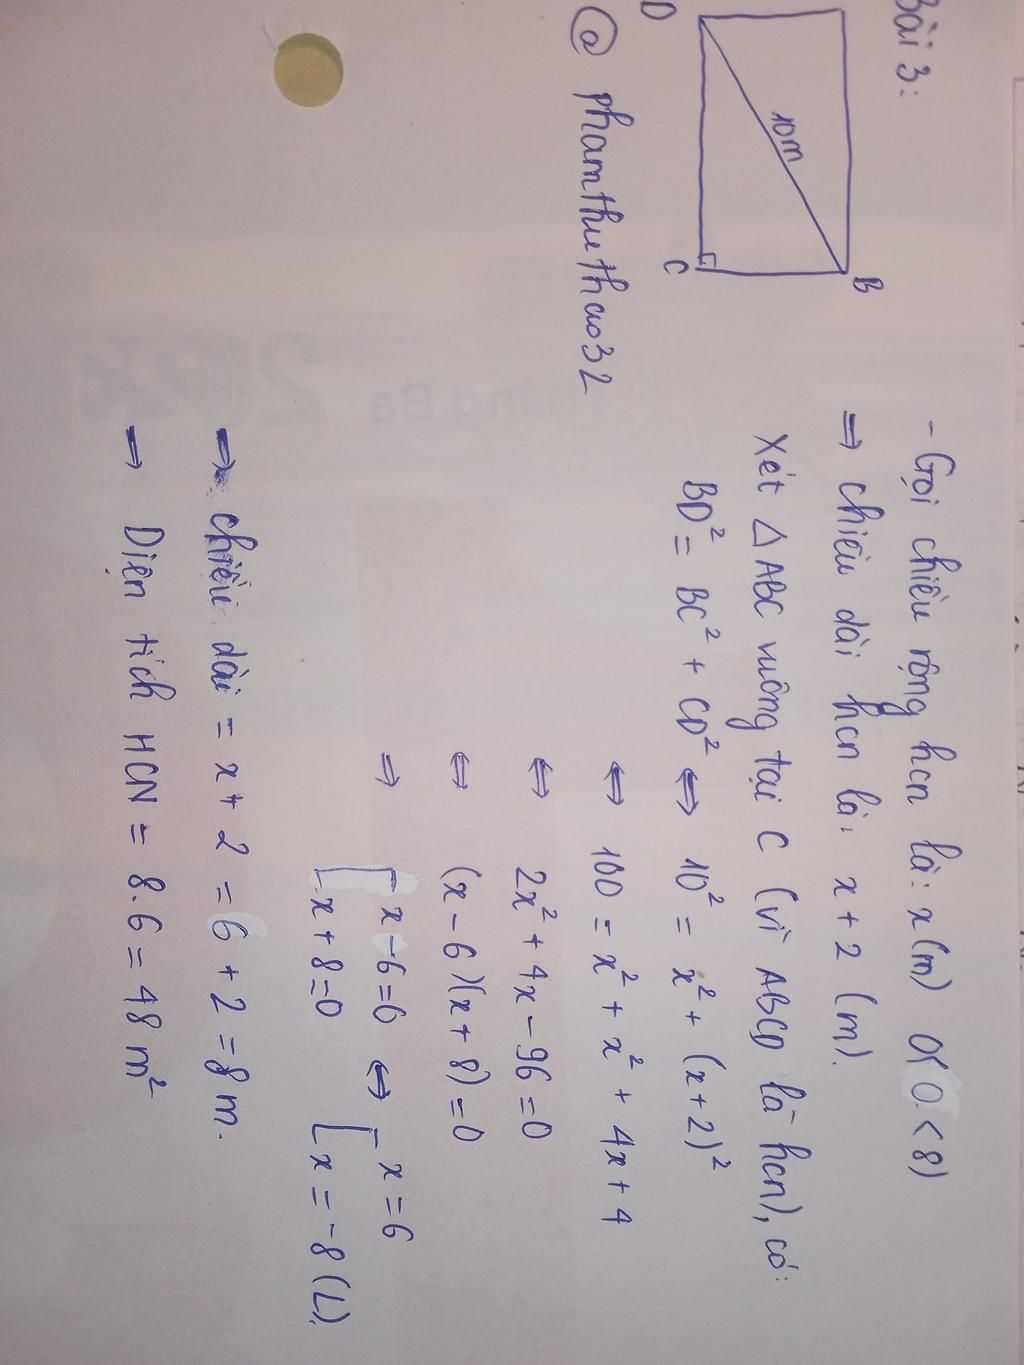 Bài 3:
B
10m
D
C
@ phamthuthao32
- Gọi chiều rộng hcn là: x(m) 0< 0 < 8)
⇒ chiều dài hcn là: x + 2 (m).
Xét △ ABC vuông tại C (vì ABCD là hcn), có:
BD² = BC² + CD² ⇔ 10² = x² + (x+2)²
⇔ 100 = x² + x² + 4x + 4
⇔ 2x² + 4x - 96 = 0
⇔ (x - 6)(x + 8) = 0
⇒ [ x - 6 = 0 ⇔ [ x = 6
[ x + 8 = 0 [ x = -8 (L).
⇒ chiều dài = x + 2 = 6 + 2 = 8 m.
⇒ Diện tích HCN = 8.6 = 48 m²